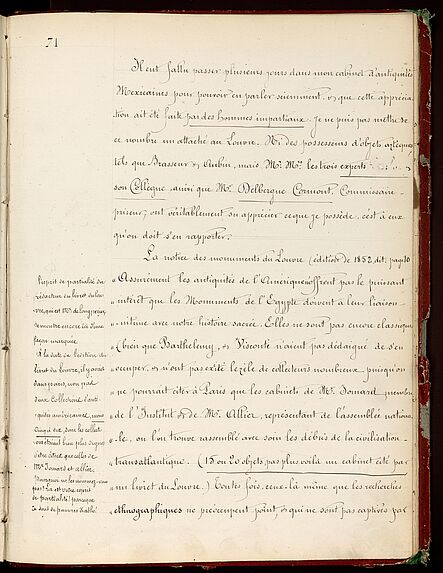 71
Il eut fallu passer plusieurs jours dans mon cabinet d'antiquités
Mexicaines pour pouvoir en parler sciemment, & que cette apprécia-
tion ait été faite par des hommes impartiaux. Je ne puis pas mettre de
ce nombre un attaché au Louvre. Ni des possesseurs d'objets aztèques
tels que Brasseur & Aubin, mais Mr. Mr. les trois experts
son Collègue, ainsi que Mr. Delbergue Cormont, Commissaire-
priseur; ont véritablement su apprécier ce que je possède. c'est à eux
qu'on doit s'en rapporter.
La notice des monuments du Louvre (édition de 1852, dit, page 10
« Assurément les antiquités de l'Amérique n'offrent pas le puissant
« intérêt que les Monuments de l'Egypte doivent à leur liaison
« intime avec notre histoire sacrée. Elles ne sont pas encore classiques
« (bien que Barthelemy, & Visconti n'aient pas dédaigné de s'en
« occuper, & n'ont pas excité le zèle de collecteurs nombreux puisqu'on
« ne pourrait citer à Paris que les cabinets de Mr. Jomard, membre
« de l'Institut & de Mr. Allier, représentant de l'assemblée nationa-
« le, ou l'on trouve rassemblé avec soin les débris de la civilisation
« transatlantique. (18 ou 20 objets, pas plus voilà un cabinet cité par
« un livret du Louvre.) Toutes fois, ceux-là même que les recherches
« ethnographiques ne préoccupent point, & qui ne sont pas captivés par
l'esprit de partialité du
rédacteur du livret du Lou-
vre, qui est Mr. de Longpérier,
se montre encore ici d'une
façon marquée.
À la date de l'édition du
livret du Louvre, il y avait
dans Paris, non pas
deux Collections d'anti-
quités américaines, mais
cinq à six, dont les collec-
ons étaient bien plus dignes
d'être citées que celles de
Mr. Jomard et Allier.
pourquoi ne les nommez-vous
pas? Là est votre esprit
de partialité! parceque